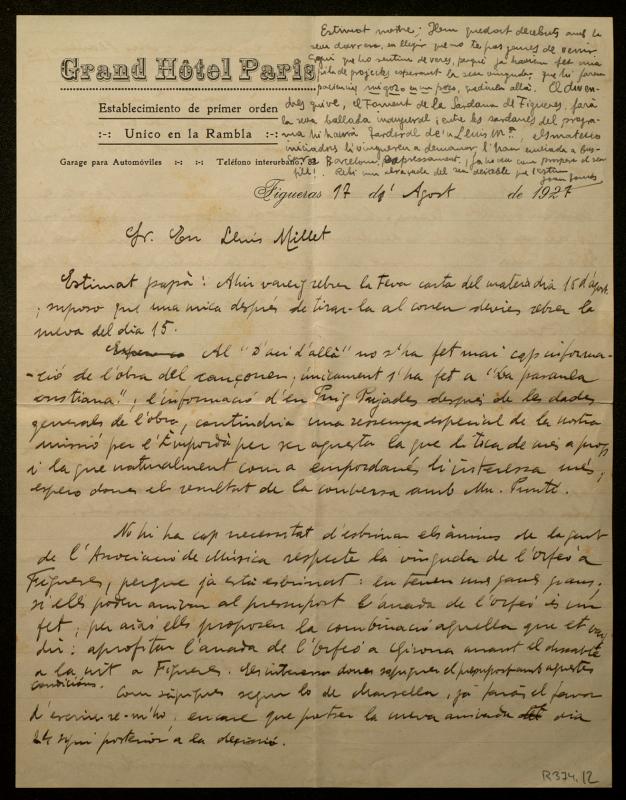 Estimat mestre: Hem quedat decebuts amb la
seva darrera, en llegir que no te pas ganes de venir
aquí que ho sentim de veres, perquè ja havíem fet una
de projectes esperant la seva vinguda, que hi farem
paciencia;
dres que ve, el Foment de la Sardana de Figueres, farà
la seva ballada inaugural i entre les sardanes del progra-
ma hi haurà d'en Lluís Mª, els mateixos
iniciadors li vingueren a demanar, l'han enviada a bus-
car a Barcelona, expressament,
fill! Rebi una abraçada del seu deixeble que l'estima
Grand Hôtel París
Establecimiento de primer orden
:-: Unico en la Rambla :-:
Garage para Automóviles :-: :-: Teléfono interurbano,
Figueras 17 d' Agost de 1927
Sr. En Lluís Millet
Estimat papà: Ahir vareig rebre la teva carta del mateix dia 16 d'agost
i suposo que una mica després de tirar-la al correu devies rebre la
meva del dia 15.
Al "D'ací d'allà" no s'ha fet mai cap informa-
ció de l'obra del cançoner; únicament s'ha fet a "La paraula
cristiana"; l'informació d'en Puig Pujades després de les dades
generals de l'obra, contindria una ressenya especial de la nostra
missió per l'Empordà per ser aquesta la que li toca de més a prop
i la que naturalment com a empordanès li interessa més;
espero doncs el resultat de la conversa amb Mn. Puntí.
No hi ha cap necessitat d'esbrinar els ànims de la gent
de l'Associació de Música respecte la vinguda de l'Orfeó a
Figueres, perquè ja està esbrinat: en tenen unes ganes grans;
si ells poden arrivar al presupost l'anada de l'Orfeó és un
fet; per això ells proposen la combinació aquella que et vaig
dir: aprofitar l'anada de l'Orfeó a Girona anant el dissabte
a la nit a Figueres. Els interessa doncs sapiguer el presupost amb aquestes
condicións.
Com sàpigues segur lo de Marsella, ja faràs el favor
d'escriure-m'ho, encare que potser la meva arrivada dia
24 sigui posterior a la decisió.
R374,12